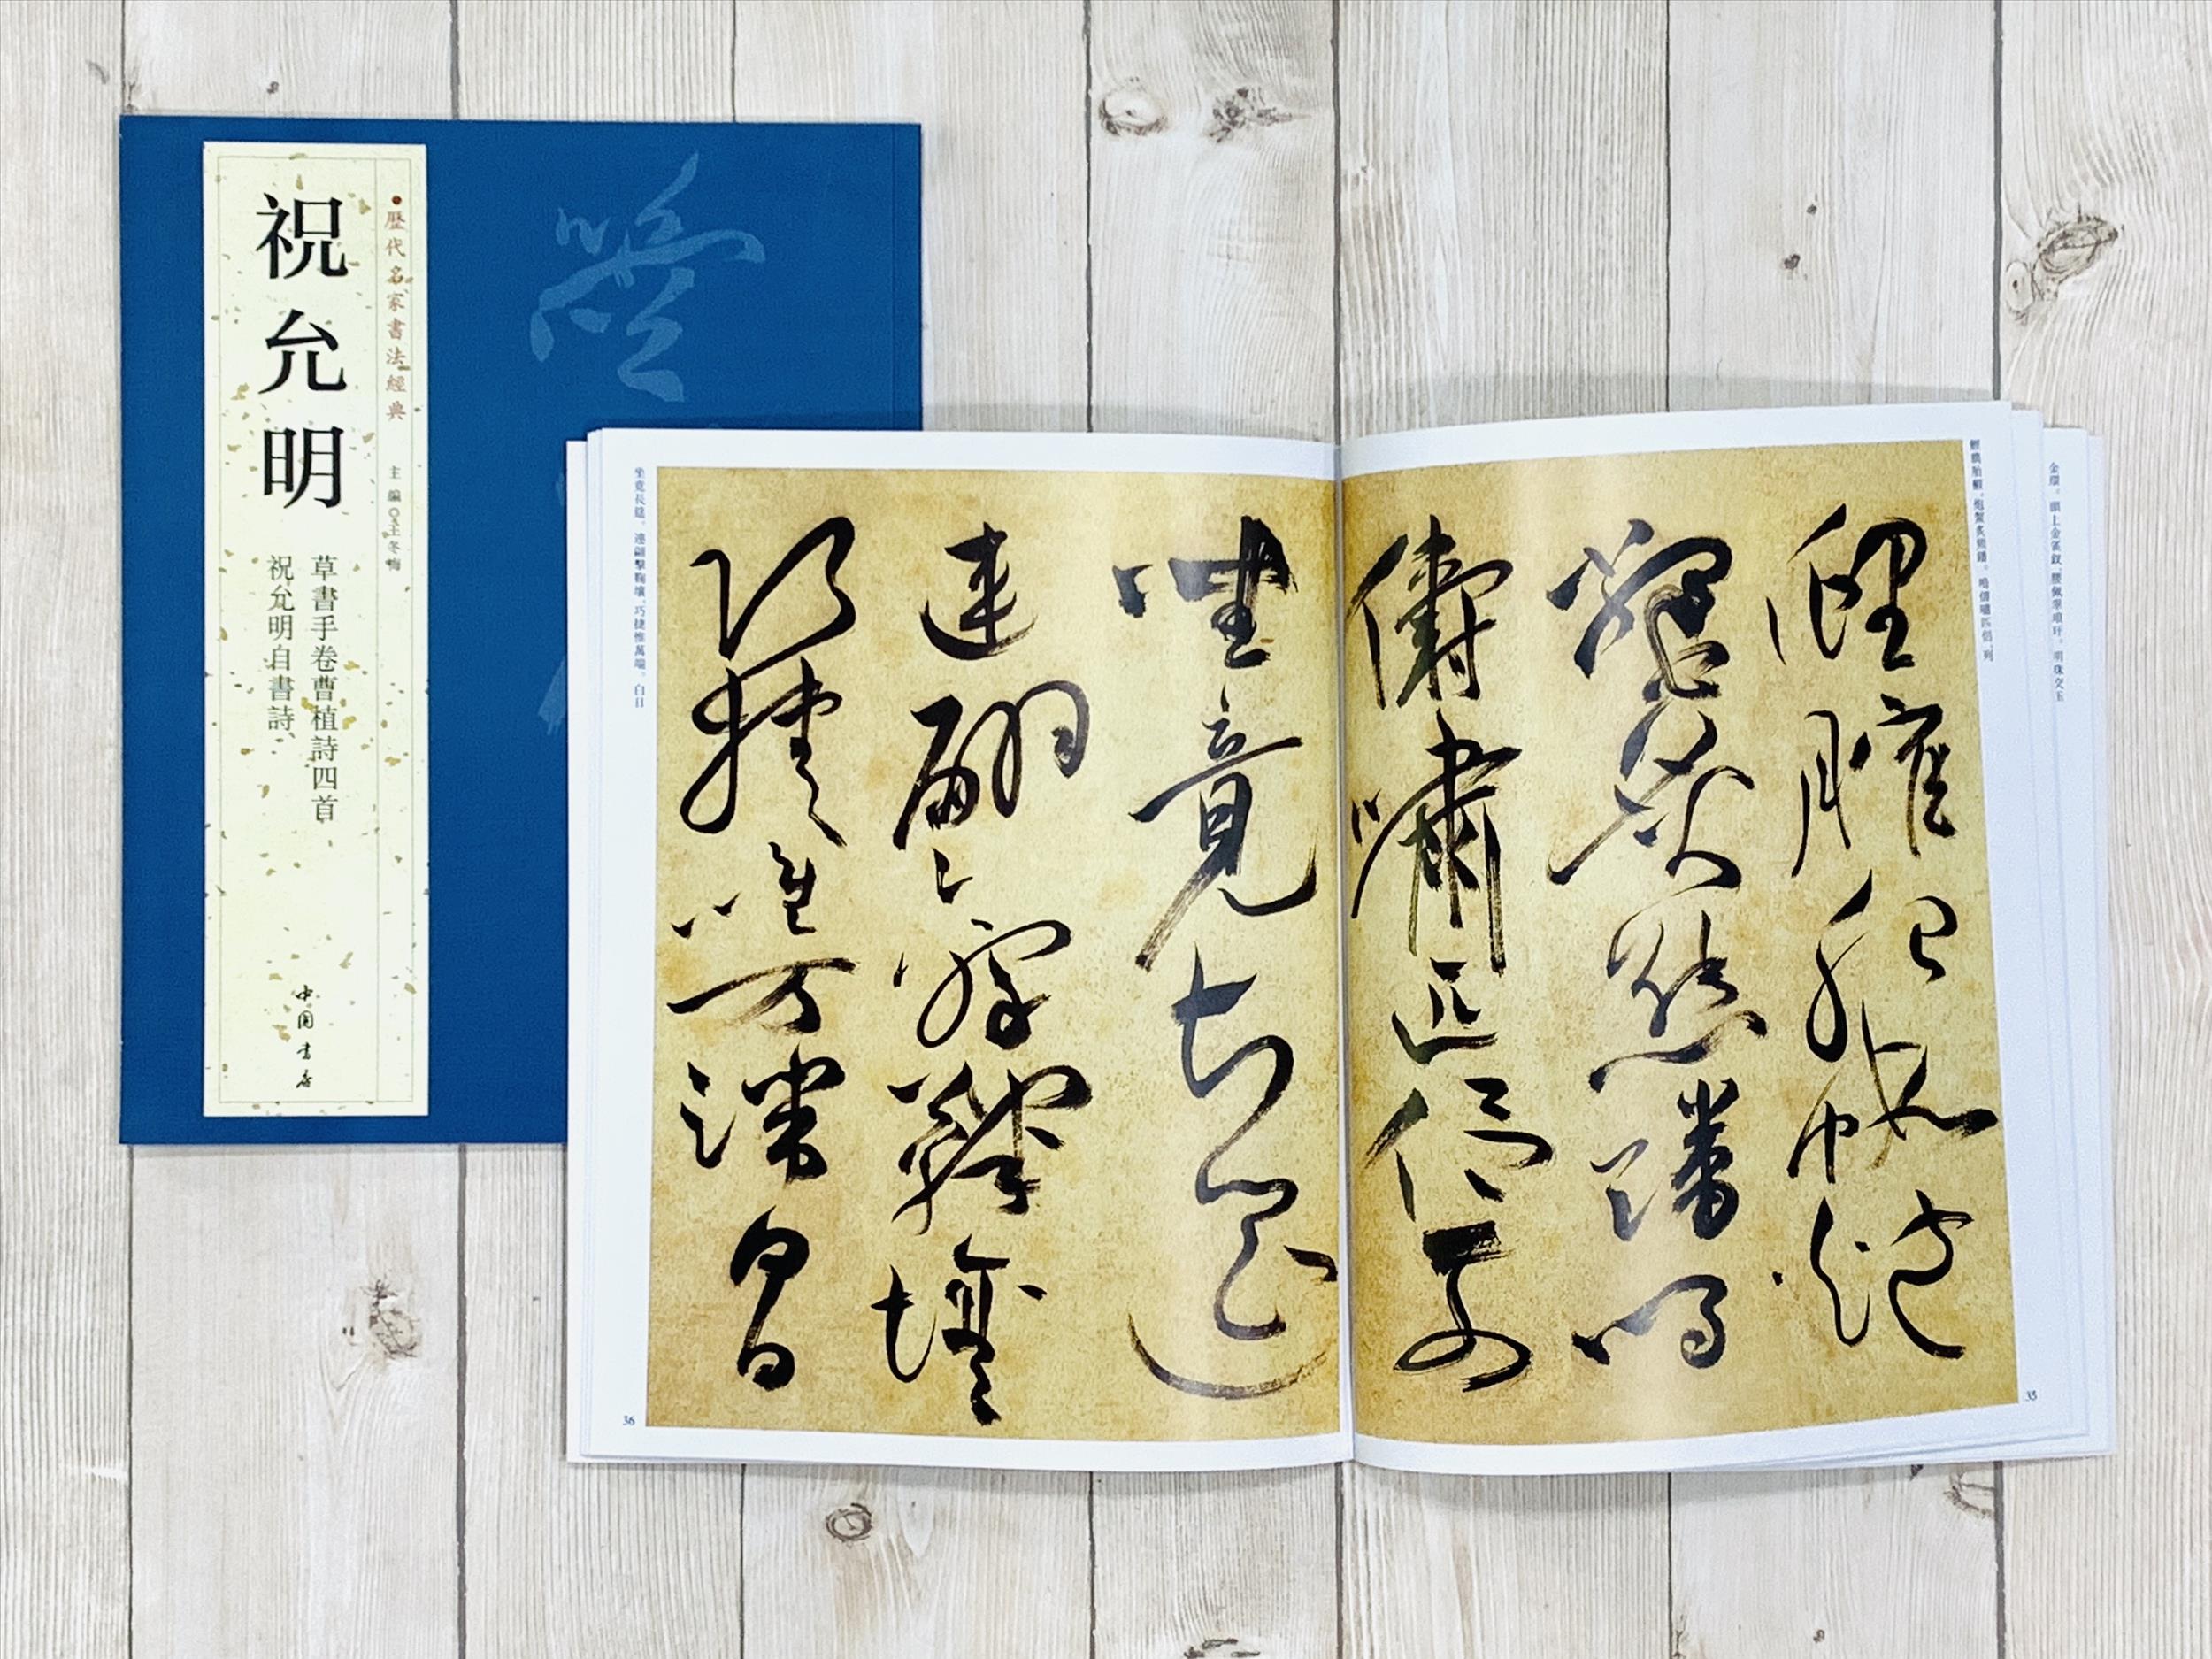 歷代名家書法經典
主編○王冬梅
祝允明
草書手卷曹植詩四首
祝允明自書詩
中國書店
金環。頭上金雀釵，腰佩翠琅玕。明珠交玉
鯉臇胎鰕，炮鱉炙熊蹯。鳴儔嘯匹侶，列
鯉臇胎鰕炮
鱉炙熊蹯鳴
儔嘯匹侶列
35
坐竟長筵
連翩擊鞠壤
巧捷惟萬端白日
坐竟長筵。連翩擊鞠壤，巧捷惟萬端。白日
36